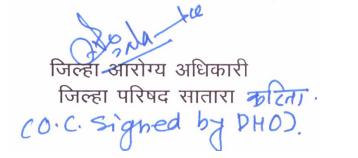 जिल्हा आरोग्य अधिकारी
जिल्हा परिषद सातारा करिता.
(O.C. Signed by DHO).